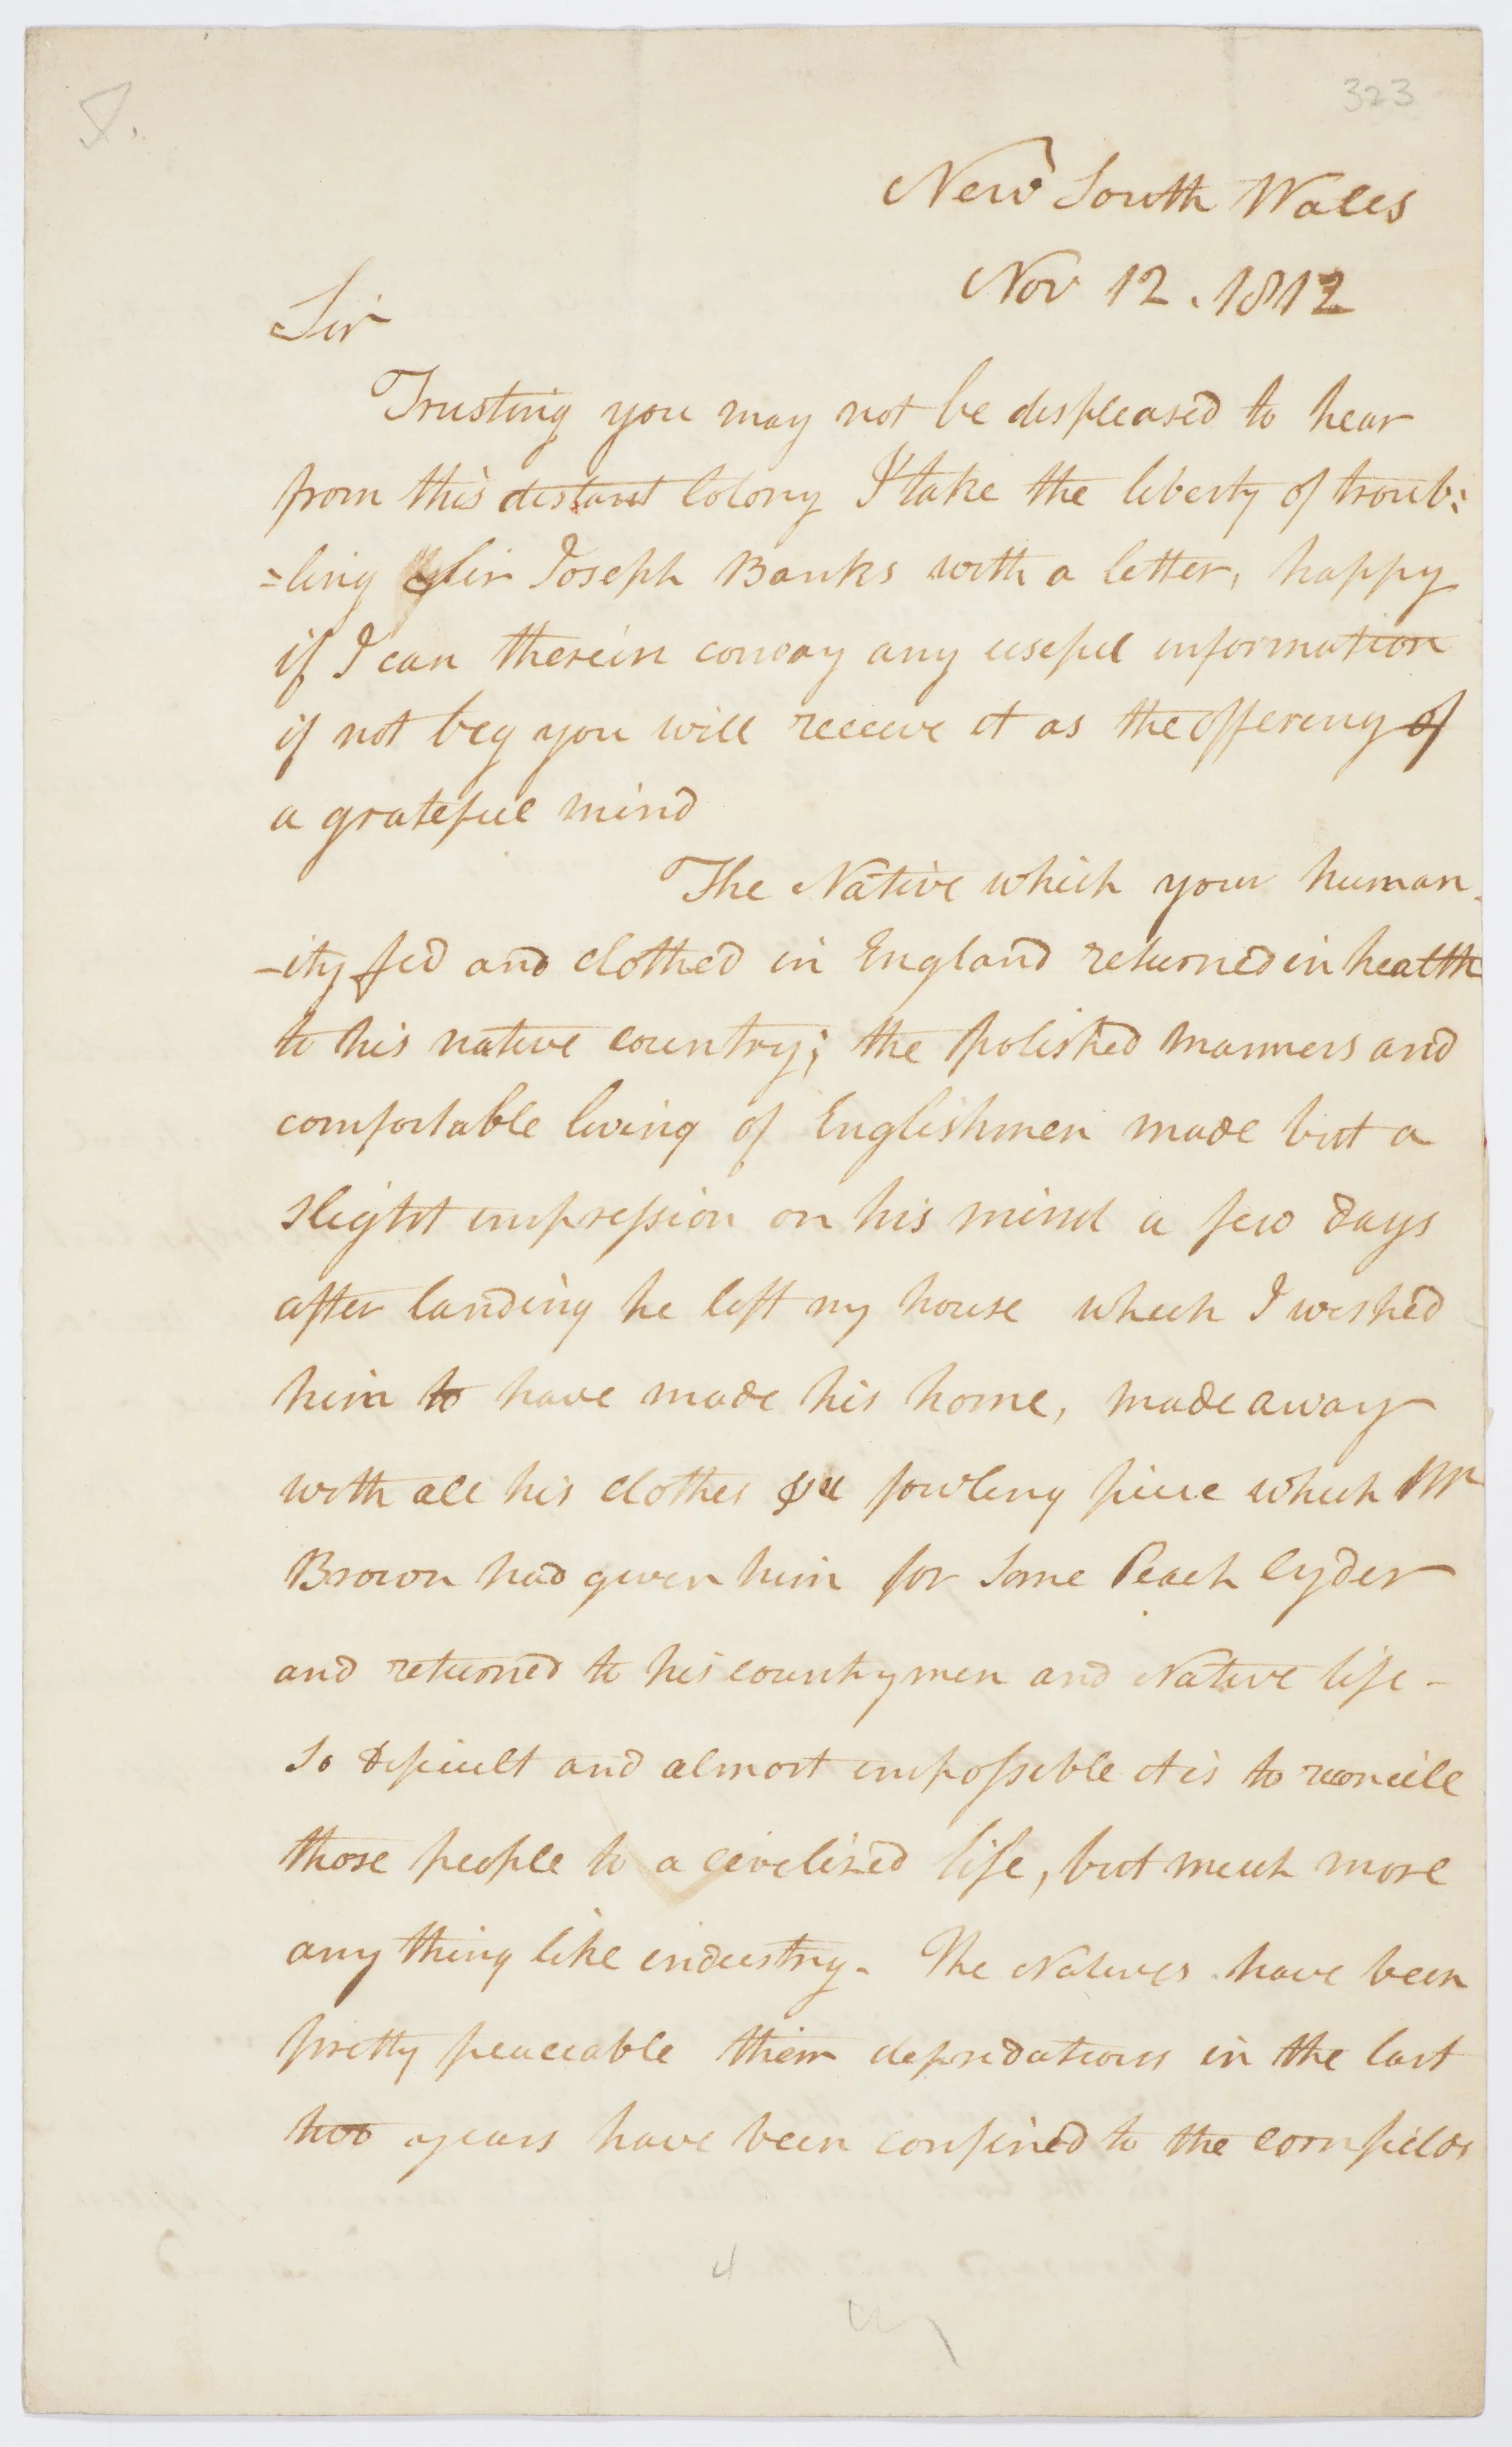 323
New South Wales
Nov 12 . 1812
Sir
Trusting you may not be displeased to hear
from this distant Colony I take the liberty of troub:
=ling Sir Joseph Banks with a letter, happy
if I can therein convay any usefull information
if not beg you will receive it as the offering of
a gratefull mind
The Native which your human-
-ity fed and clothed in England returned in health
to his native country; the polished manners and
comfortable living of Englishmen made but a
slight impression on his mind a few days
after landing he left my house which I wished
him to have made his home, made away
with all his clothes & fowling piece which Mr
Brown had given him for some Peach Cyder
and returned to his countrymen and Native life -
So dificult and almost impossible it is to reconcile
those people to a civelized life, but much more
any thing like industry. The Natives have been
pretty peaceable their depredations in the last
two years have been confined to the cornfields
4